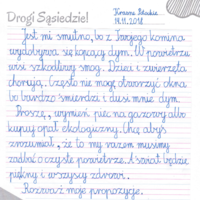 Drogi Sąsiedzie!
14.11.2018
Jest mi smutno, bo z Twojego komina
wydobywa się kopcący dym. W powietrzu
wisi szkodliwy smog. Dzieci i zwierzęta
chorują. Często nie mogę otworzyć okna
bo bardzo śmierdzi i dusi mnie dym.
Proszę, wymień piec na gazowy albo
kupuj opał ekologiczny. Chcę abyś
zrozumiał, że to my razem musimy
zadbać o czyste powietrze. A świat będzie
piękny i wszyscy zdrowi.
Rozważ moje propozycje.